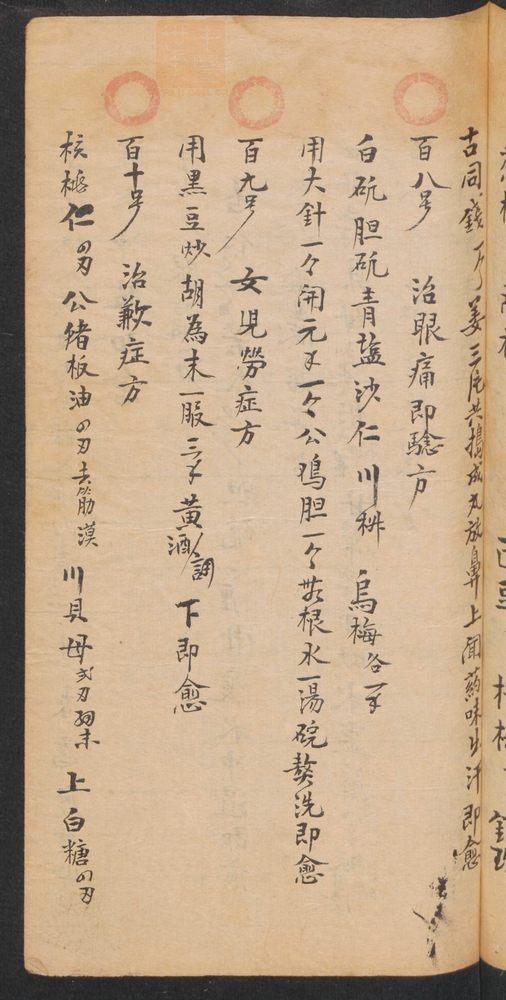 古同錢一个姜三片共搗成丸放鼻上聞葯味出汗即愈
百八号 治眼痛即騐方
白矾胆矾青盐沙仁川椒 烏梅各一
用大針一个開元 一个公鸡胆一个 根水一湯碗熬洗即愈
百九号 女児勞症方
用黑豆炒胡為末一服三 黄酒調下即愈
百十号 治歉症方
核桃仁四刃 公猪板油四刃去筋漠 川貝母弍刃 末 上白糖四刃